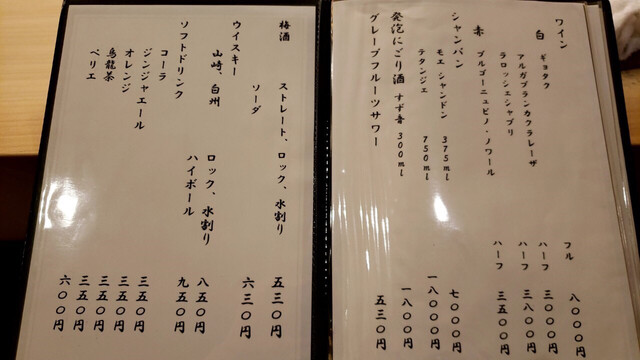 ワイン
白 ギョタク フル 八〇〇〇円
アルガブランカクラレーザ ハーフ 三〇〇〇円
ラロッシュシャブリ ハーフ 三八〇〇円
赤 ブルゴーニュピノ・ノワール ハーフ 三五〇〇円
シャンパン
モエ シャンドン 375ml 七〇〇〇円
テタンジェ 750ml 一八〇〇〇円
発泡にごり酒 すず音 300ml 一八〇〇円
グレープフルーツサワー 五三〇円
梅酒
ストレート、ロック、水割り 五三〇円
ソーダ 六三〇円
ウイスキー
山崎、白州 ロック、水割り 八五〇円
ハイボール 九五〇円
ソフトドリンク
コーラ 三五〇円
ジンジャエール 三五〇円
オレンジ 三五〇円
烏龍茶 三五〇円
ペリエ 六〇〇円